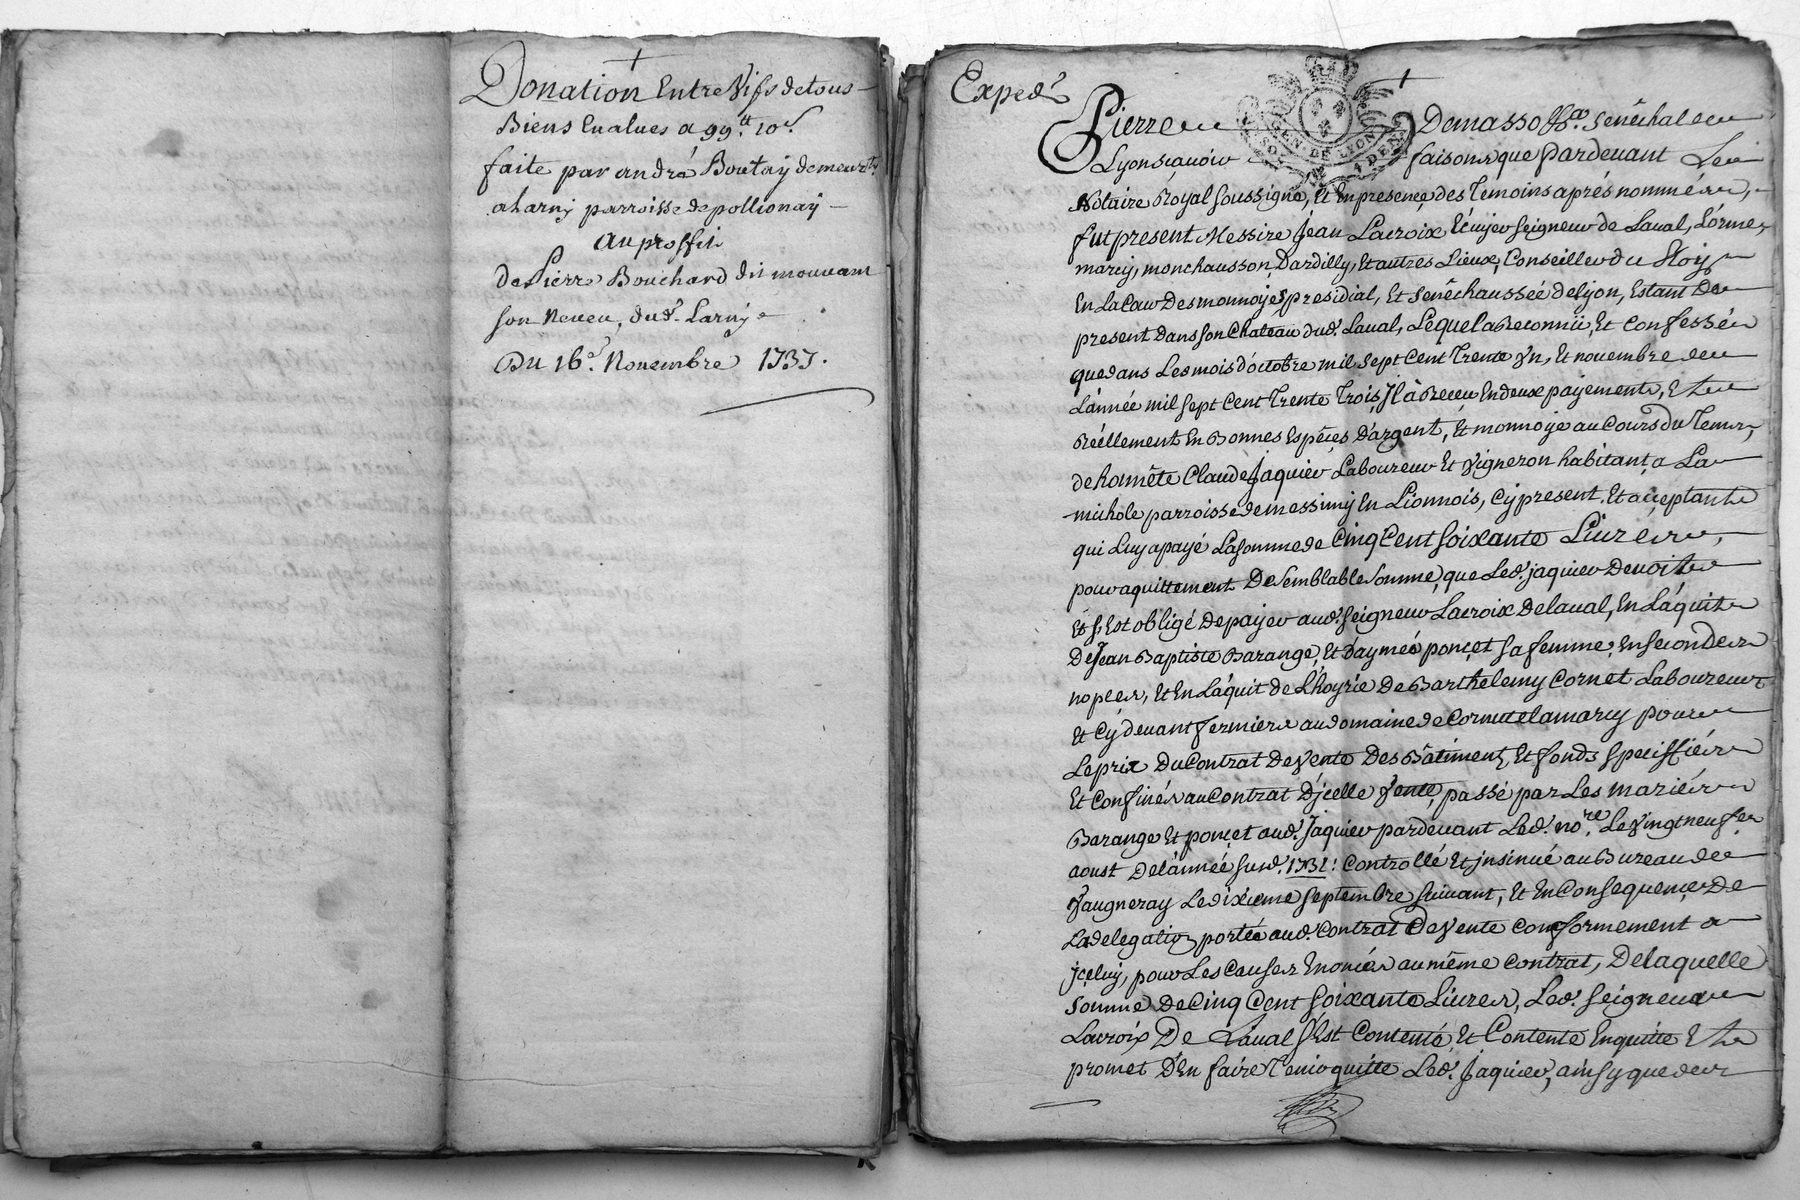 Donation Entre Vifs de tous
Biens Evalues a 99.tt 10.s
faite par andré Boutaÿ demeurt.
a larnÿ parroisse de pollionaÿ
au proffit
De Pierre Bouchard dit mouvant
son Neveu, dud. Larnÿ
Du 16.e Novembre 1737.
Exped.
GEN DE LYON
Pierre Demasso &.a senêchal de
Lyon sçavoir faisons que Pardevant Le
Notaire Royal soussigné, et En presence des Temoins aprés nommés,
fut present Messire Jean Lacroix Ecuÿer seigneur de Laval, L'orme,
marcy, monchausson, Dardilly, Et autres Lieux, Conseiller du Roÿ
En La Cour Des monnoyes, presidial, Et senêchaussée de lÿon, Estant De
present Dans son Chateau dud. Laval, Lequel a Reconnü, Et Confessé
que dans Les mois d'octobre mil sept Cent Trente Un, Et novembre de
L'année mil sept Cent Trente Trois, Il à Receu En deux payements, Et
Réellement En Bonnes Espêces D'argent, Et monnoye au Cours du Tems,
de honnête Claude Jaquier Laboureur Et Vigneron habitant a La
michole parroisse de messimÿ En Lionnois, Cÿ present, Et acceptant
qui Luy a payé La somme de Cinq Cent soixante Livres,
pour aquittement De semblable somme, que Led. jaquier Devoit
Et s'Est obligé De payer aud. seigneur Lacroix de laval, En L'aquit
De Jean Baptiste Barange, Et D'aymée ponçet sa femme, En secondes
nopces, Et En L'aquit de L'hoyrie de Barthelemy Cornet Laboureur
Et Cÿ devant fermier au domaine de Cornutel a marcy pour
Le prix Du Contrat de Vente Des Bâtiments, Et fonds speciffiés
Et Confinés au Contrat D'jcelle Vente, passé par Les mariés
Barange Et ponçet aud. Jaquier pardevant Led. no.re Le Vingt neuf
aoust De L'année susd. 1731: Controllé Et jnsinué au Bureau de
Vaugneray Le dixieme septembre suivant, Et En Consequence De
La delegation portée aud. Contrat De Vente Conformement a
jceluy, pour Les Causes Enoncées au même Contrat, De laquelle
somme De Cinq Cent soixante Livres, Led. seigneur
Lacroix De Laval s'Est Contenté, Et Contente En quitte Et
promet D'En faire Tenir quitte Led. Jaquier, ainsy que des